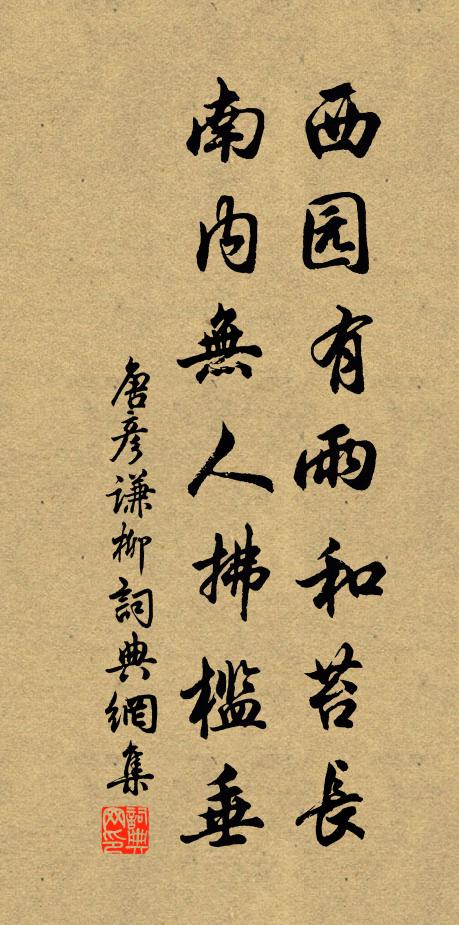 西园有雨和苔長
南内無人拂檻垂
唐彦謙柳詞典網集
詞典网印